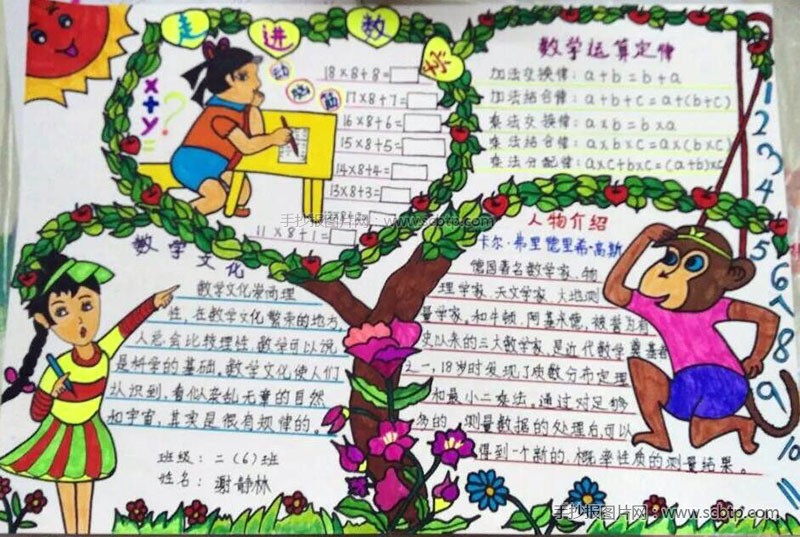 走进数学
动脑筋
x+y=?
18×8+8=
17×8+7=
16×8+6=
15×8+5=
14×8+4=
13×8+3=
11×8+1=
数学运算定律
加法交换律：a+b=b+a
加法结合律：a+b+c=a+(b+c)
乘法交换律：a×b=b×a
乘法结合律：a×b×c=a×(b×c)
乘法分配律：a×c+b×c=(a+b)×c
手抄报图片网：www.scbtp.com
数学文化
数学文化崇尚理
性，在数学文化繁荣的地方，
人总会比较理性，数学可以说
是科学的基础。数学文化使人们
认识到，看似杂乱无章的自然
和宇宙，其实是很有规律的。
班级：二（6）班
姓名：谢静林
人物介绍
卡尔·弗里德里希·高斯
德国著名数学家、物
理学家、天文学家、大地测
量学家。和牛顿、阿基米德，被誉为有
史以来的三大数学家，是近代数学奠基者
之一，18岁时发现了质数分布定理
和最小二乘法。通过对足够
多的测量数据的处理后，可以
得到一个新的、概率性质的测量结果。
1
2
3
4
5
6
7
8
9
10
11
手抄报图片网：www.scbtp.com